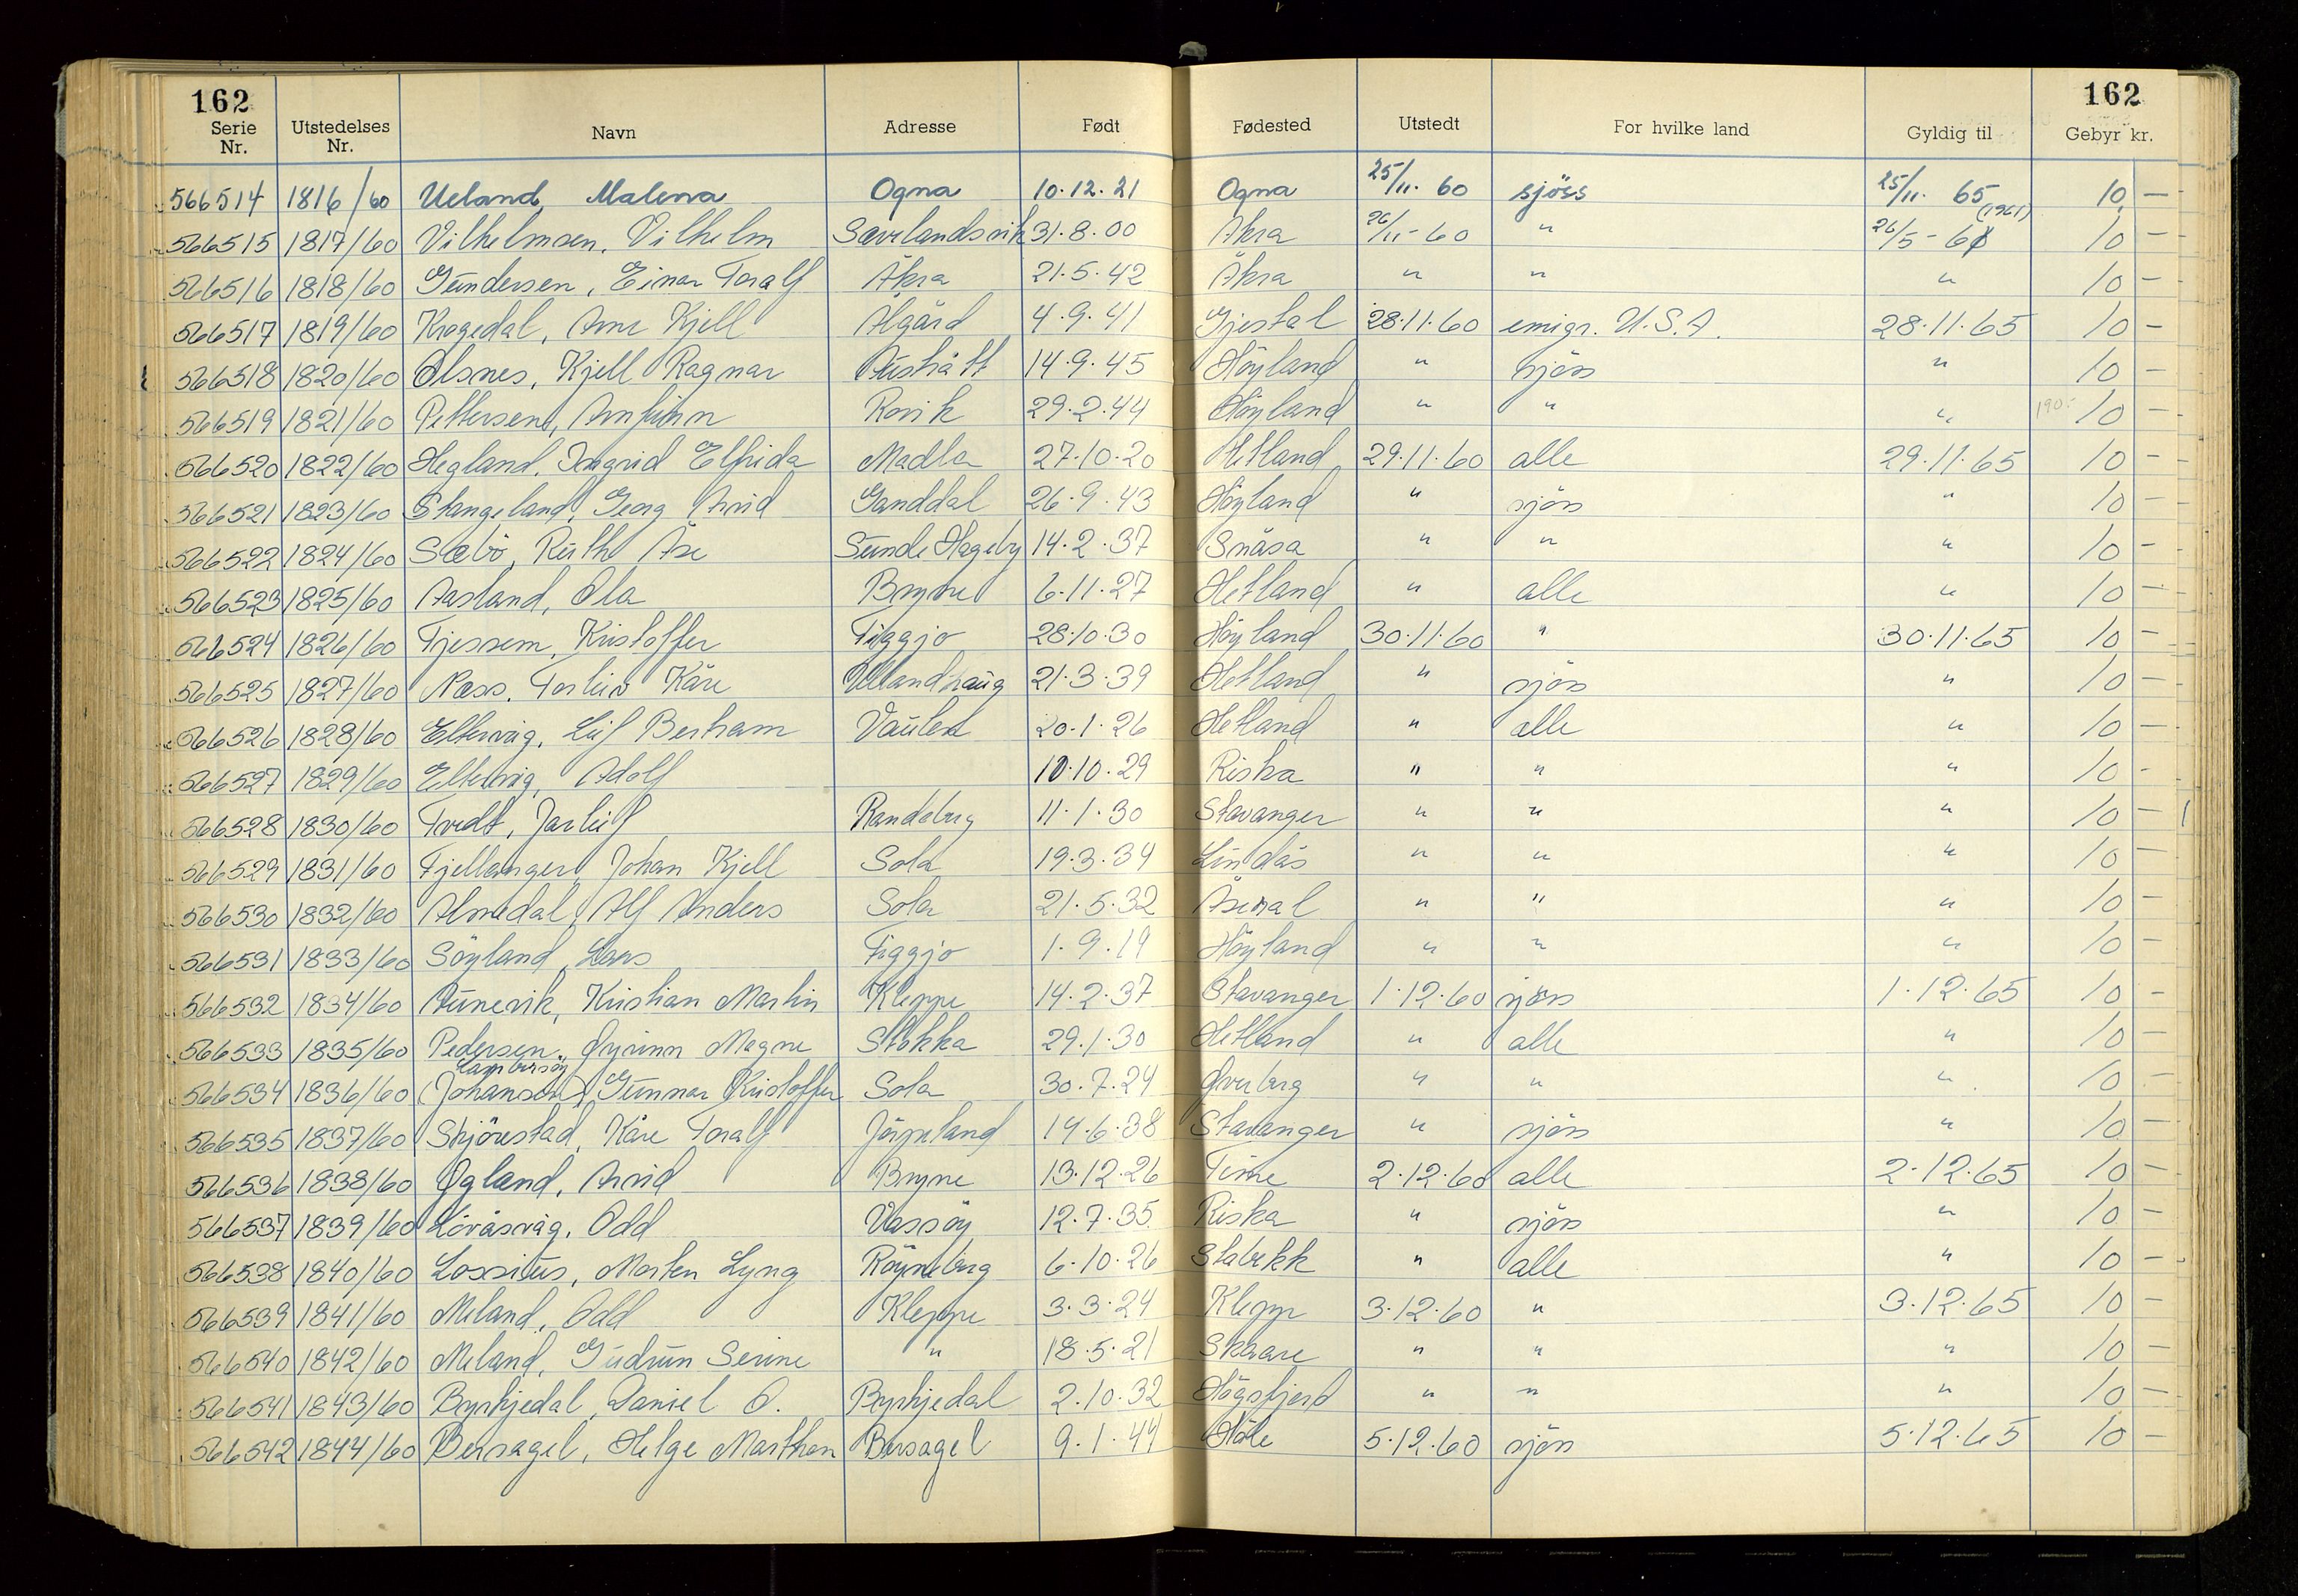 162 162
Serie Nr. Utstedelses Nr. Navn Adresse Født Fødested Utstedt For hvilke land Gyldig til Gebyr kr.
566514 1816/60 Ueland, Malena Ogna 10.12.21 Ogna 25/11. 60 sjöss 25/11. 65 10 —
566515 1817/60 Vilhelmsen, Vilhelm Sævelandsvik 31.8.00 Åkra 26/11-60 " 26/5-61 (1961) 10 —
566516 1818/60 Gundersen, Einar Toralf Åkra 21.5.42 Åkra " " " 10 —
566517 1819/60 Kragedal, Arne Kjell Ålgård 4.9.41 Gjestal 28.11.60 emigr. U.S.A. 28.11.65 10 —
566518 1820/60 Olsnes, Kjell Ragnar Austrått 14.9.45 Höyland " sjöss " 10 —
566519 1821/60 Pettersen, Arnfinn Rovik 29.2.44 Höyland " " " 190.- 10 —
566520 1822/60 Hegland, Ingrid Elfrida Madla 27.10.20 Hetland 29.11.60 alle 29.11.65 10 —
566521 1823/60 Stangeland, Georg Arvid Ganddal 26.9.43 Höyland " sjöss " 10 —
566522 1824/60 Sæbö, Ruth Åse Sunde Hageby 14.2.37 Snåsa " " " 10 —
566523 1825/60 Aasland, Ola Bryne 6.11.27 Hetland " alle " 10 —
566524 1826/60 Tjessem, Kristoffer Figgjo 28.10.30 Höyland 30.11.60 " 30.11.65 10 —
566525 1827/60 Næss, Torleiv Kåre Ullandhaug 21.3.39 Hetland " sjöss " 10 —
566526 1828/60 Eltervåg, Leif Berham Vaulen 20.1.26 Hetland " alle " 10 —
566527 1829/60 Eltervåg, Adolf 10.10.29 Riska " " " 10 -
566528 1830/60 Tvedt, Jarleif Randaberg 11.1.30 Stavanger " " " 10 —
566529 1831/60 Fjellanger, Johan Kjell Sola 19.3.34 Lindås " " " 10 —
566530 1832/60 Almedal, Alf Anders Sola 21.5.32 Åseral " " " 10 —
566531 1833/60 Söyland, Lars Figgjo 1.9.19 Höyland " " " 10 —
566532 1834/60 Aunevik, Kristian Martin Kleppe 14.2.37 Stavanger 1.12.60 sjöss 1.12.65 10 —
566533 1835/60 Pedersen, Øyvinn Magne Stokka 29.1.30 Hetland " alle " 10 —
566534 1836/60 (Johansen) Gunnar Kristoffer Sola 30.7.24 Øverberg " " " 10 —
566535 1837/60 Skjörestad, Kåre Toralf Jörpeland 14.6.38 Stavanger " sjöss " 10 —
566536 1838/60 Øgland, Arvid Bryne 13.12.26 Time 2.12.60 alle 2.12.65 10 —
566537 1839/60 Löväsvåg, Odd Vassöy 12.7.35 Riska " sjöss " 10 —
566538 1840/60 Lossius, Morten Lyng Röyneberg 6.10.26 Stabekk " alle " 10 —
566539 1841/60 Meland, Odd Kleppe 3.3.24 Klepp 3.12.60 " 3.12.65 10 —
566540 1842/60 Meland, Gudrun Serine " 18.5.21 Skåare " " " 10 —
566541 1843/60 Byrkjedal, Daniel O. Byrkjedal 2.10.32 Högsfjord " " " 10 —
566542 1844/60 Bersagel, Helge Marthon Bersagel 9.1.44 Höle 5.12.60 sjöss 5.12.65 10 —